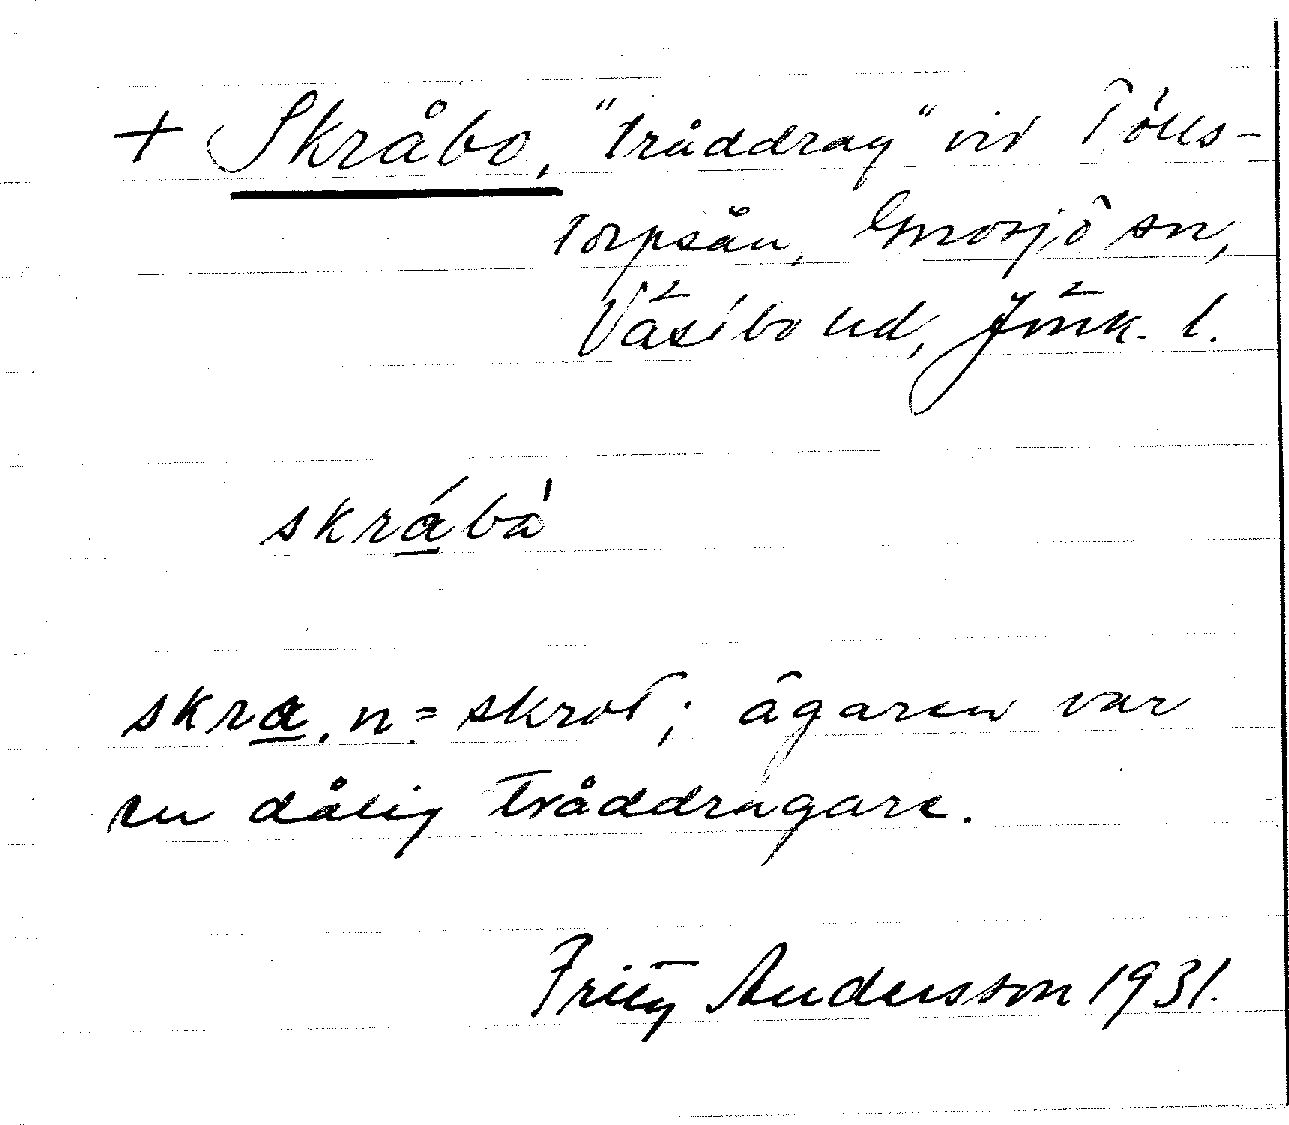 + Skråbo, "tråddrag" vid Tölls-
torpsån, Gnosjö sn,
Västbo hd, Jönk. l.
skrábà
skra, n = skrot; ägaren var
en dålig tråddragare.
Fritz Andersson 1931.